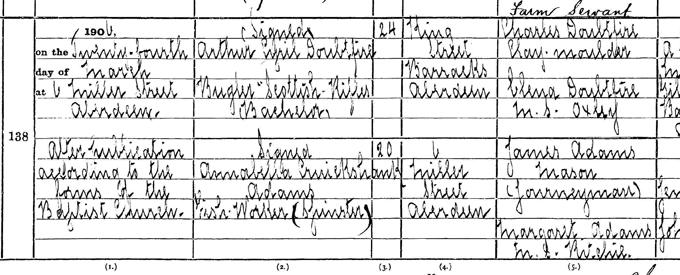 Farm Servant
1906,
on the Twenty-fourth
day of March
at 6 Miller Street
Aberdeen.
After Publication
according to the
Forms of the
Baptist Church.
138
(Signed)
Arthur Doubtfire
Bugler Scottish Rifles
(Bachelor)
Signed
Annabella Cruickshank
Adams
Worker (Spinster)
24
20
King
Street
Barracks
Aberdeen
6
Miller
Street
Aberdeen
Charles Doubtfire
Clay-moulder
Doubtfire
M.S. Oxley
James Adams
Mason
(Journeyman)
Margaret Adams
M.S. Ritchie.
(1.) (2.) (3.) (4.) (5.)